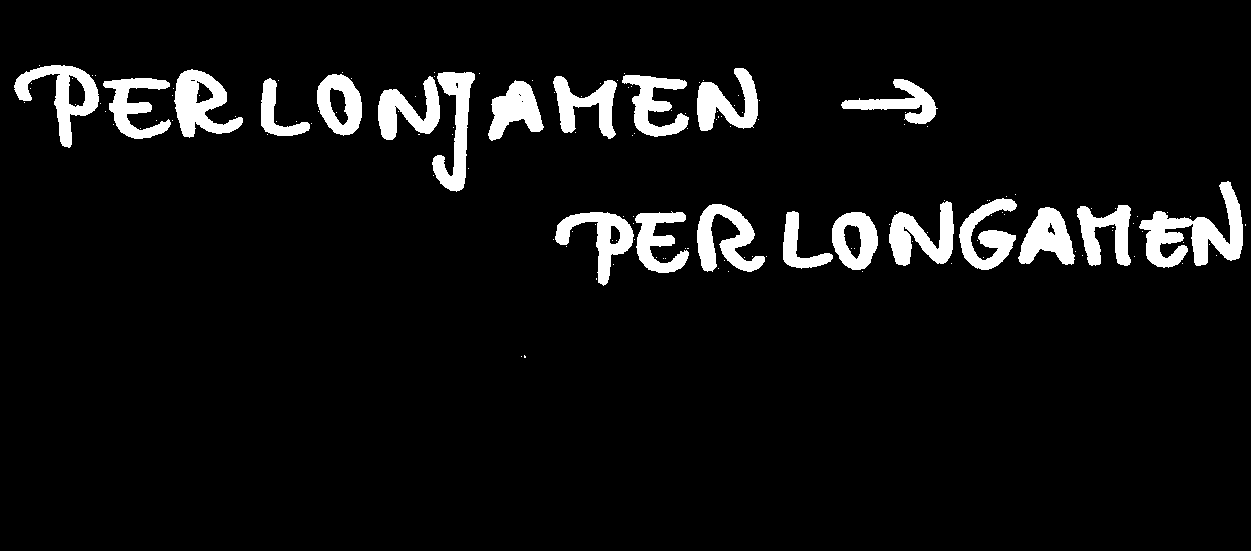 PERLONJAMEN →
PERLONGAMEN